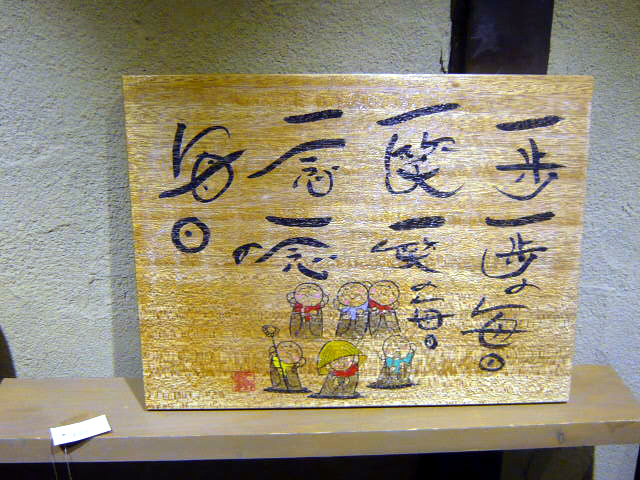 一歩一歩の毎日
一笑一笑の毎日
一念一念の
毎日